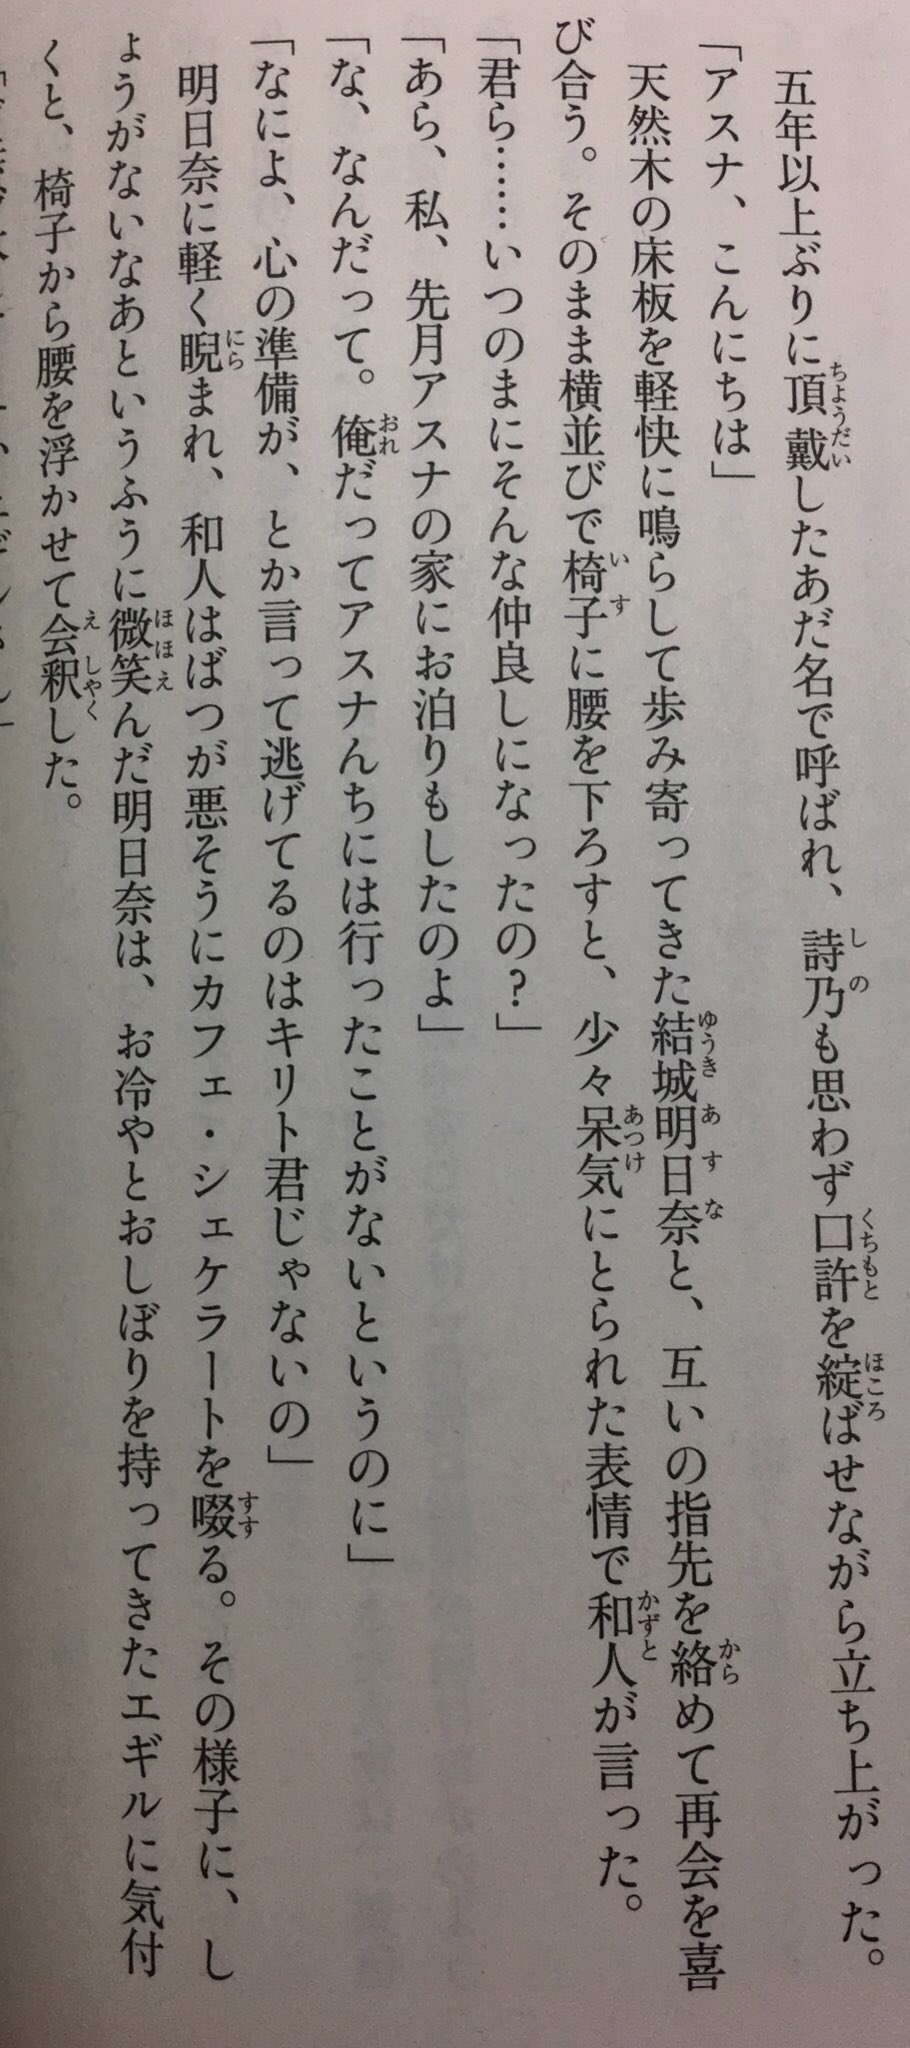 五年以上ぶりに頂戴したあだ名で呼ばれ、詩乃も思わず口許を綻ばせながら立ち上がった。
「アスナ、こんにちは」
天然木の床板を軽快に鳴らして歩み寄ってきた結城明日奈と、互いの指先を絡めて再会を喜
び合う。そのまま横並びで椅子に腰を下ろすと、少々呆気にとられた表情で和人が言った。
「君ら……いつのまにそんな仲良しになったの？」
「あら、私、先月アスナの家にお泊りもしたのよ」
「な、なんだって。俺だってアスナんちには行ったことがないというのに」
「なによ、心の準備が、とか言って逃げてるのはキリト君じゃないの」
明日奈に軽く睨まれ、和人はばつが悪そうにカフェ・シェケラートを啜る。その様子に、し
ょうがないなあというふうに微笑んだ明日奈は、お冷やとおしぼりを持ってきたエギルに気付
くと、椅子から腰を浮かせて会釈した。